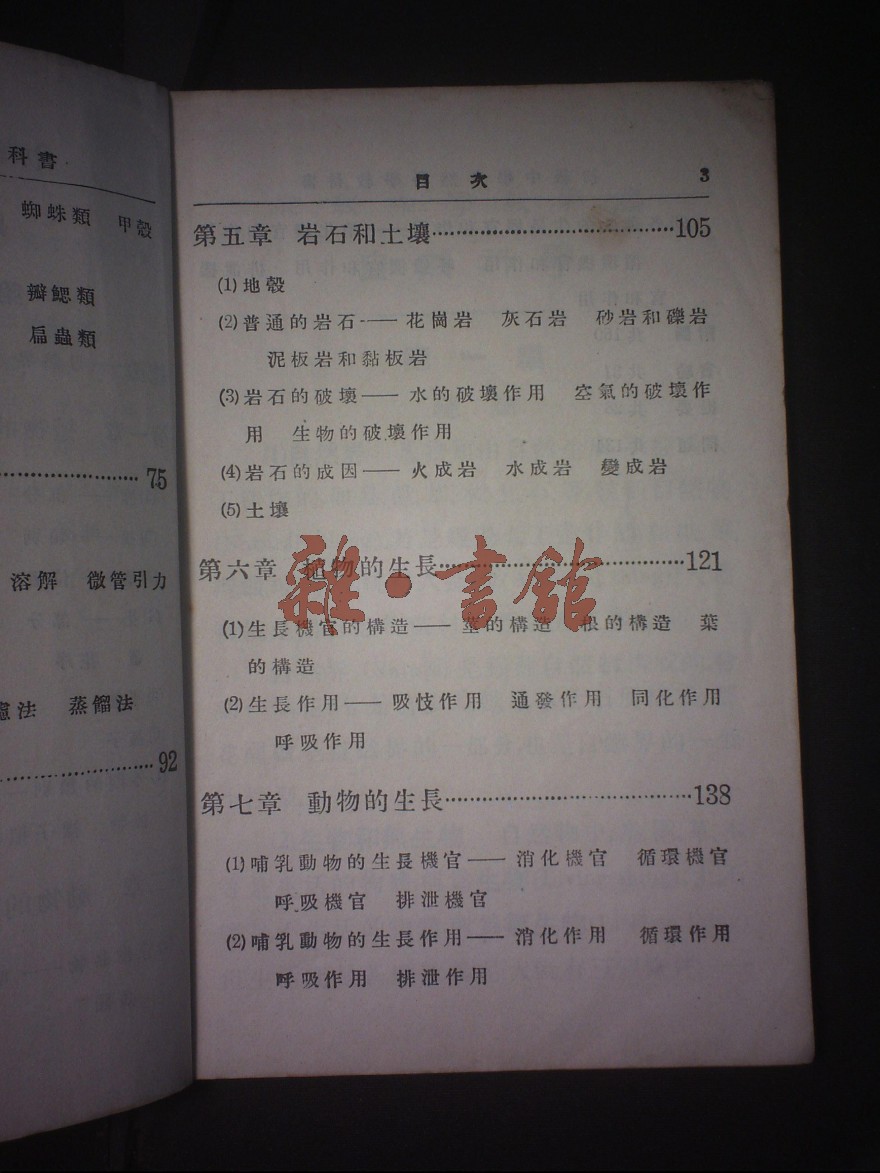 科書
蜘蛛類 甲殼
瓣鰓類
扁蟲類
75
溶解 微管引力
法 蒸餾法
92
目次 3
第五章 岩石和土壤 105
(1)地殼
(2)普通的岩石——花崗岩 灰石岩 砂岩和礫岩
泥板岩和黏板岩
(3)岩石的破壞——水的破壞作用 空氣的破壞作
用 生物的破壞作用
(4)岩石的成因——火成岩 水成岩 變成岩
(5)土壤
第六章 植物的生長 121
(1)生長機官的構造——莖的構造 根的構造 葉
的構造
(2)生長作用——吸收作用 通發作用 同化作用
呼吸作用
第七章 動物的生長 138
(1)哺乳動物的生長機官——消化機官 循環機官
呼吸機官 排泄機官
(2)哺乳動物的生長作用——消化作用 循環作用
呼吸作用 排泄作用
雜·書館